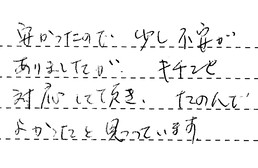 安かったので 少し不安が
ありましたが、キチンと
対応して頂き、たのんで
よかったと思っています